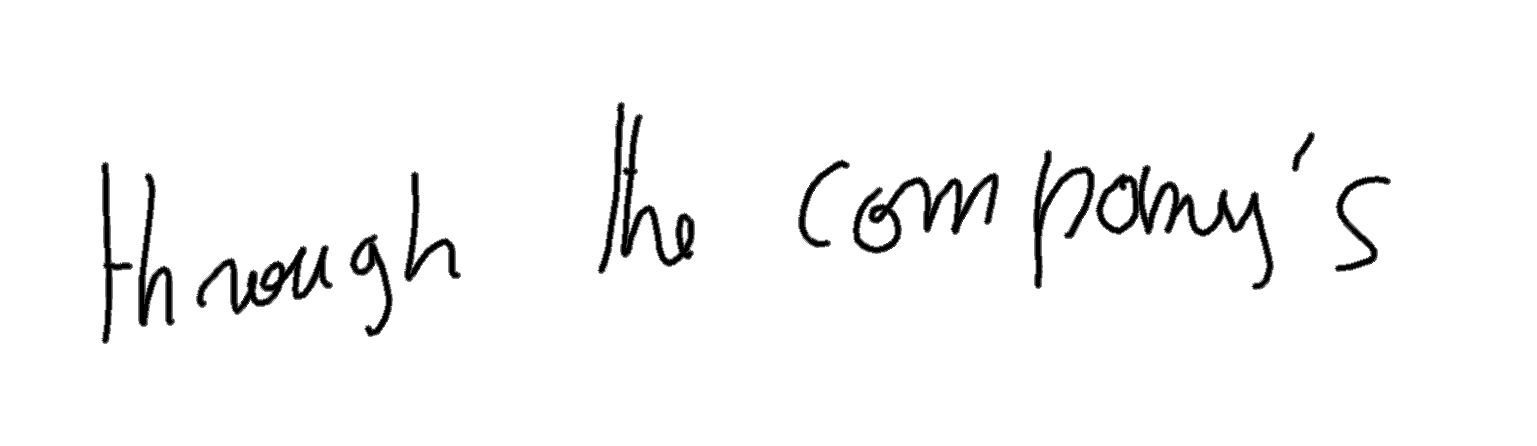 through the company's